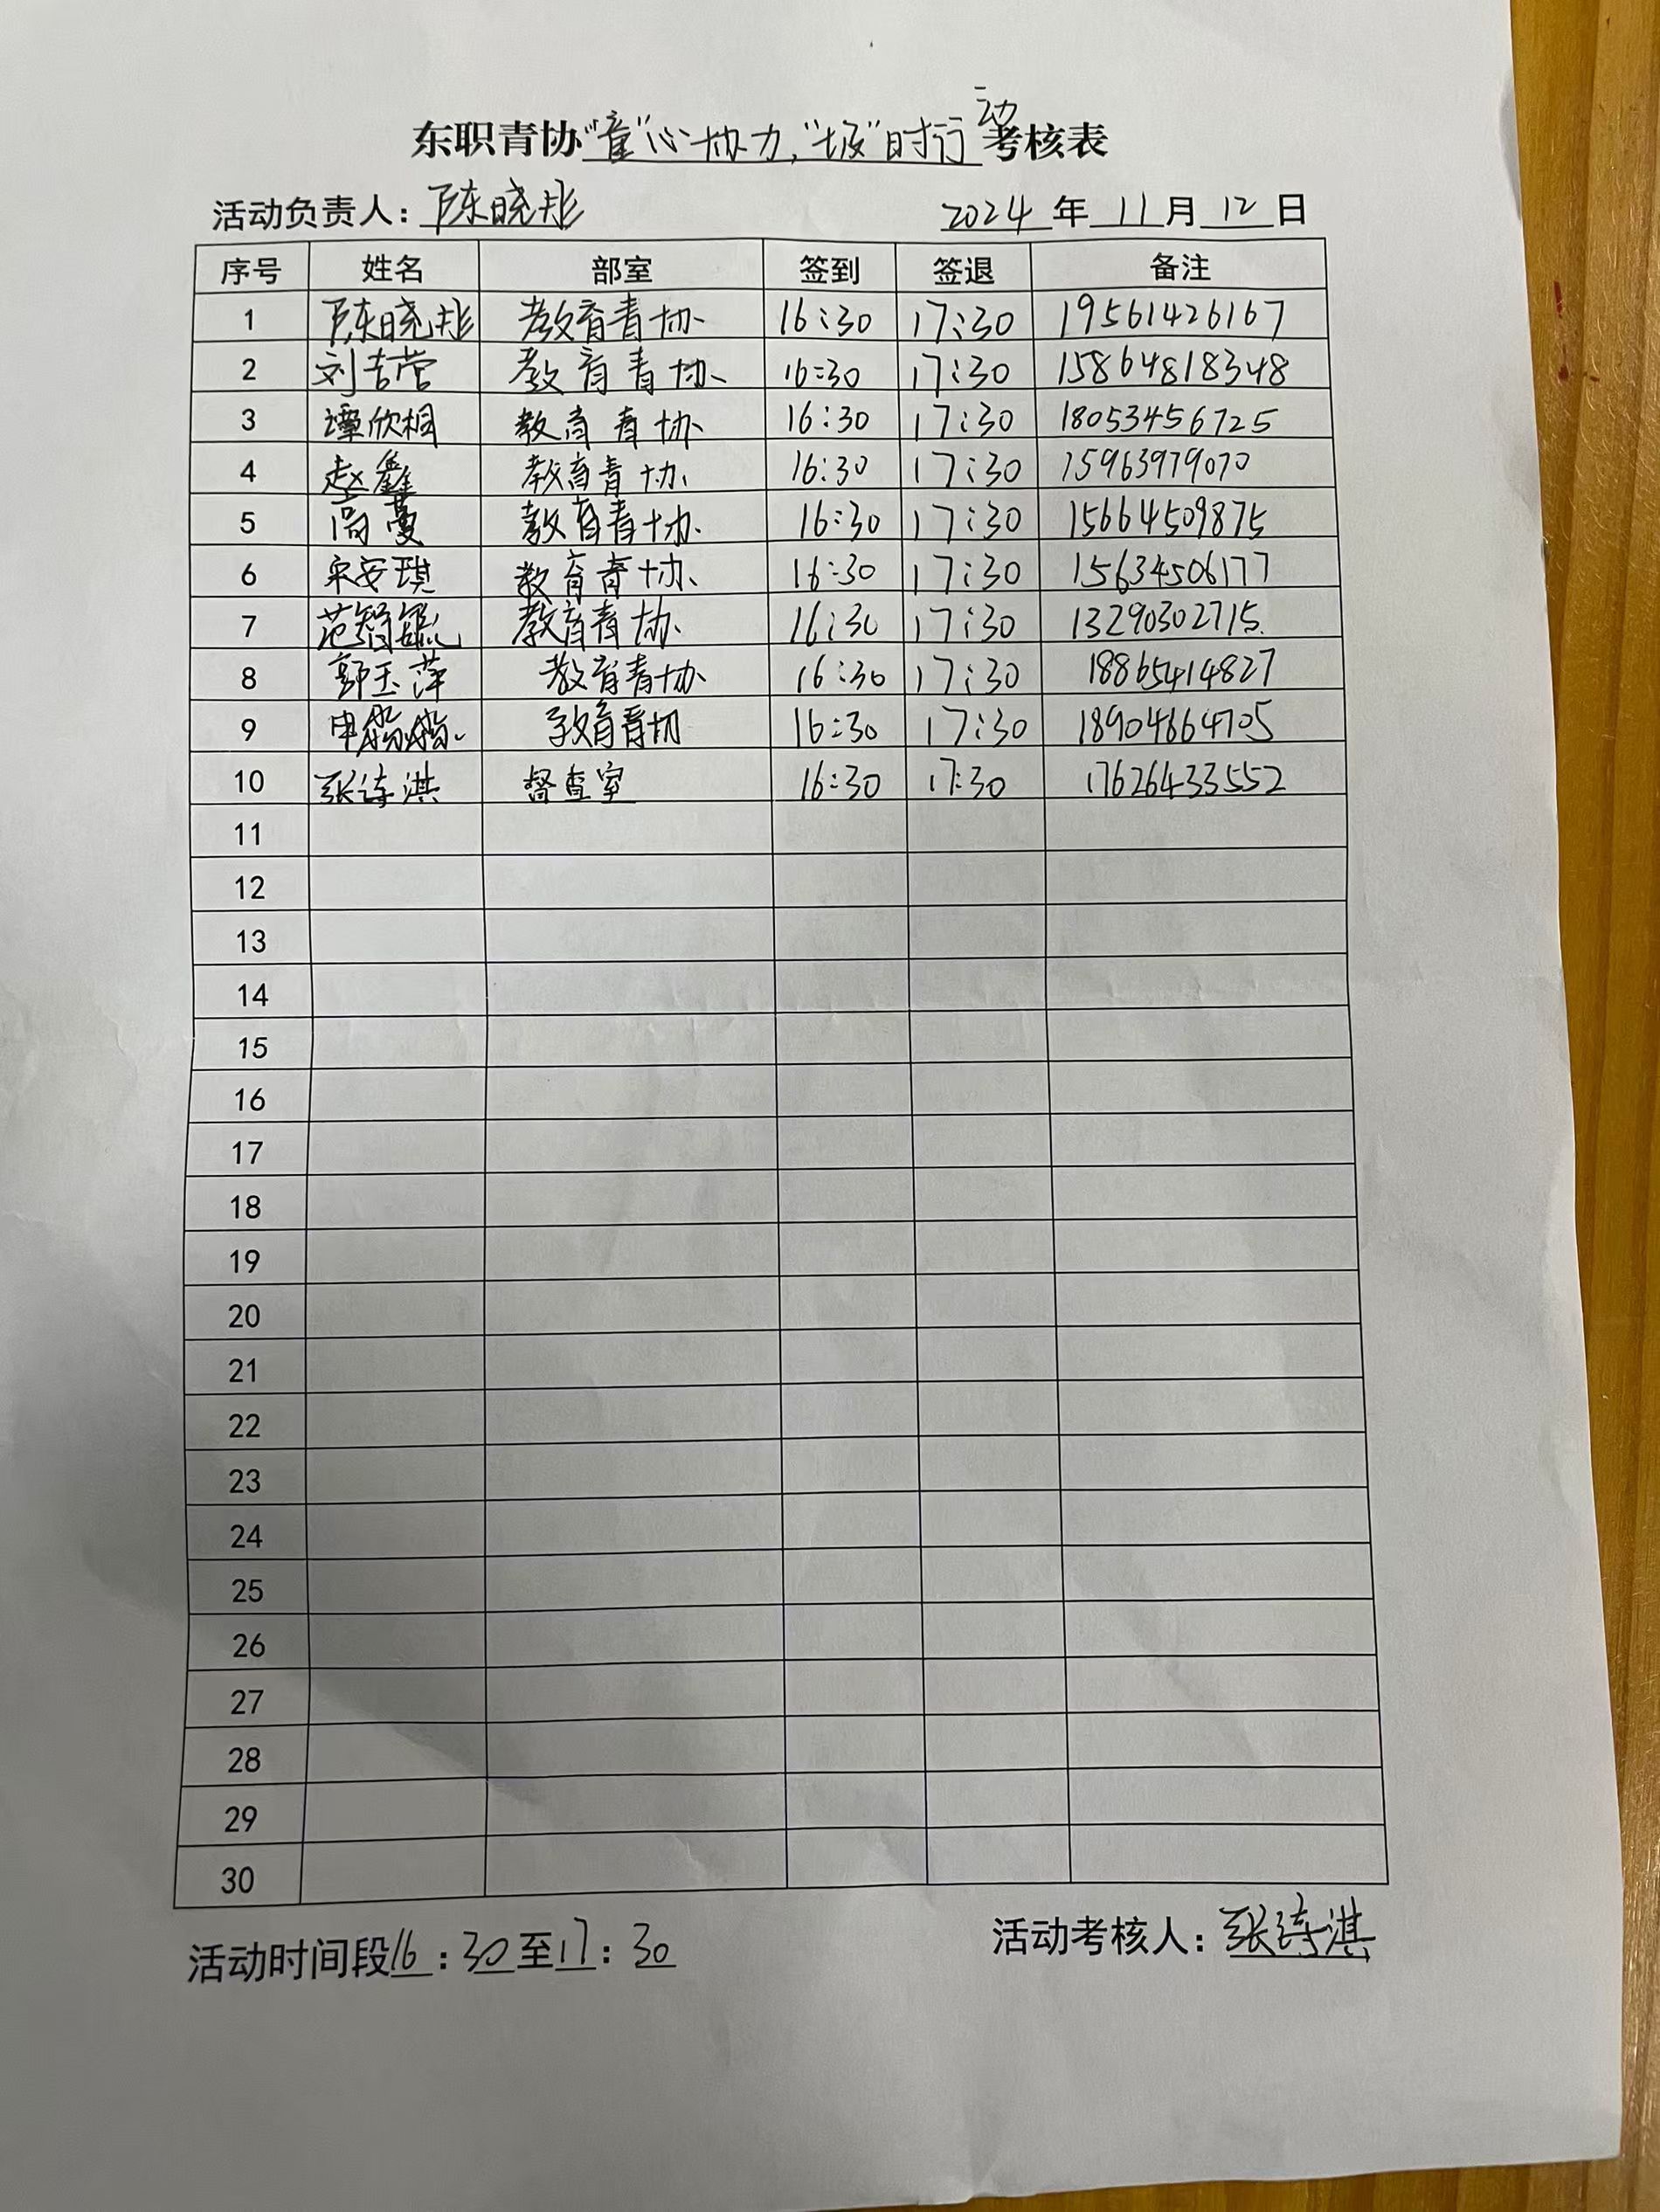 动
东职青协"童"心协力,"垃"时行考核表
活动负责人:陈晓彤 2024年11月12日
序号 姓名 部室 签到 签退 备注
1 陈晓彤 教育青协 16:30 17:30 19561426167
2 刘吉营 教育青协 16:30 17:30 15864818348
3 谭欣桐 教育青协 16:30 17:30 18053456725
4 赵鑫 教育青协 16:30 17:30 15963979070
5 高蔓 教育青协 16:30 17:30 15664509875
6 宋安琪 教育青协 16:30 17:30 15634506177
7 范智毓 教育青协 16:30 17:30 13290302715
8 郭玉萍 教育青协 16:30 17:30 18865414827
9 申 教育青协 16:30 17:30 18904664705
10 张诗淇 督查室 16:30 17:30 17626433552
11
12
13
14
15
16
17
18
19
20
21
22
23
24
25
26
27
28
29
30
活动时间段16:30至17:30 活动考核人:张诗淇